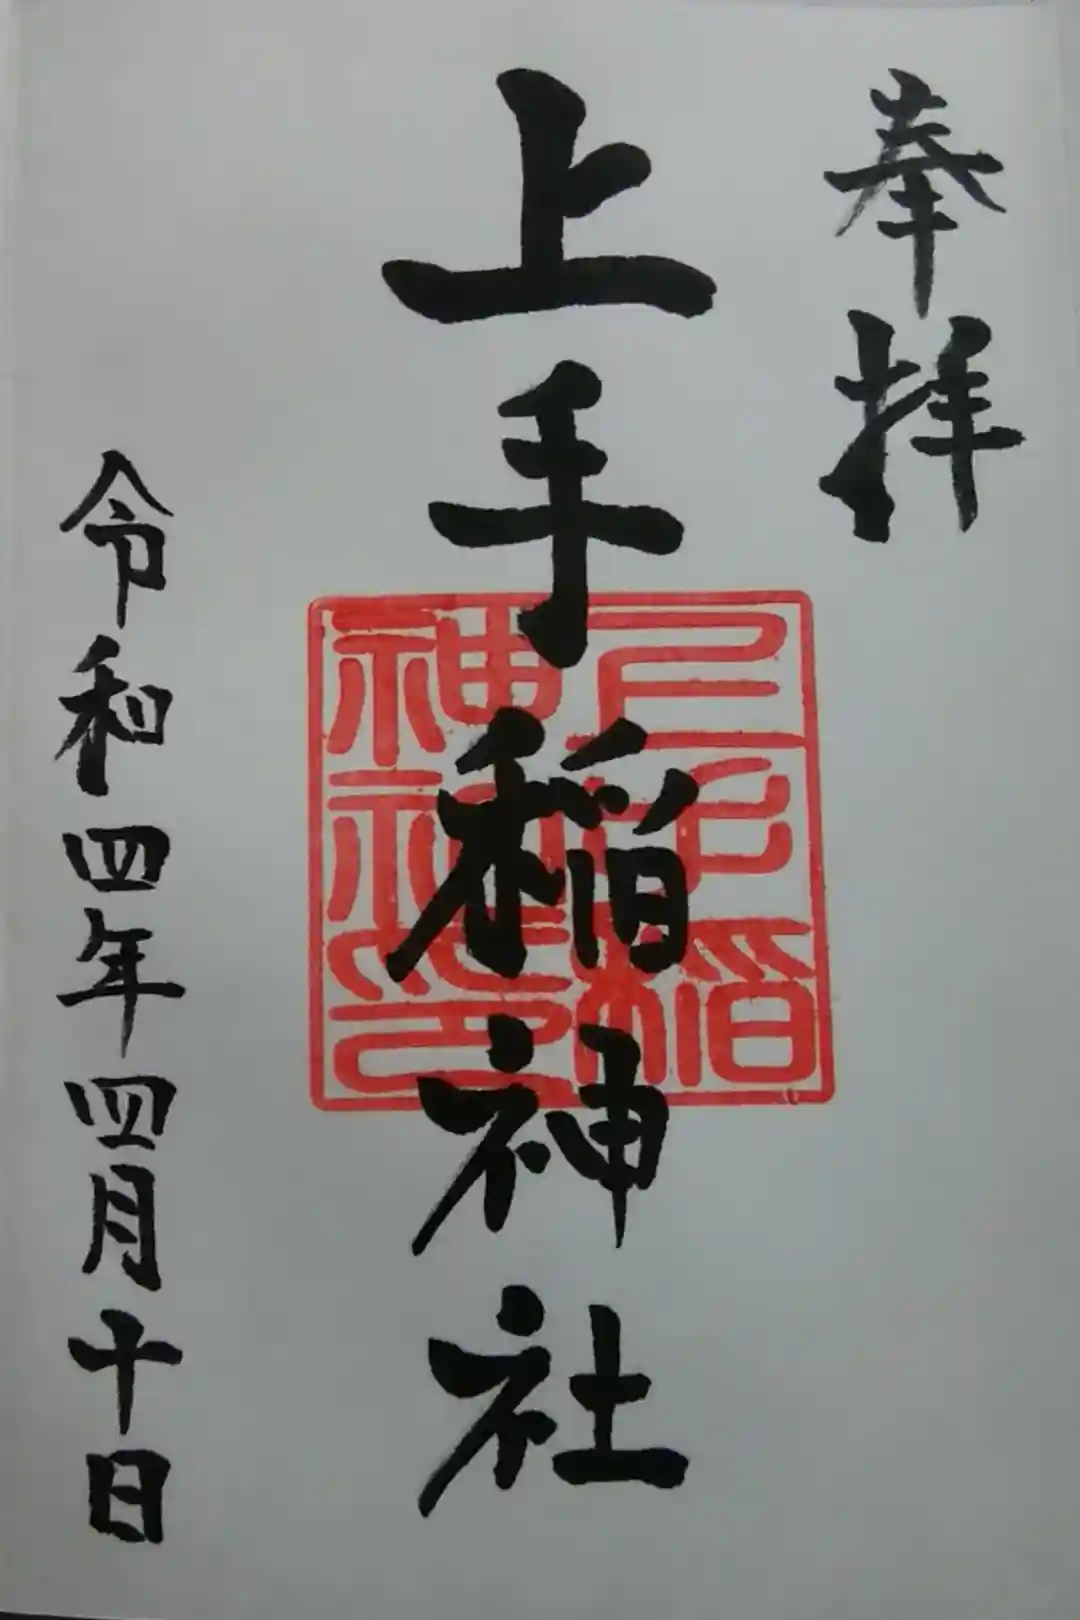 奉拝
上手稲神社
上手稲神社印
令和四年四月十日